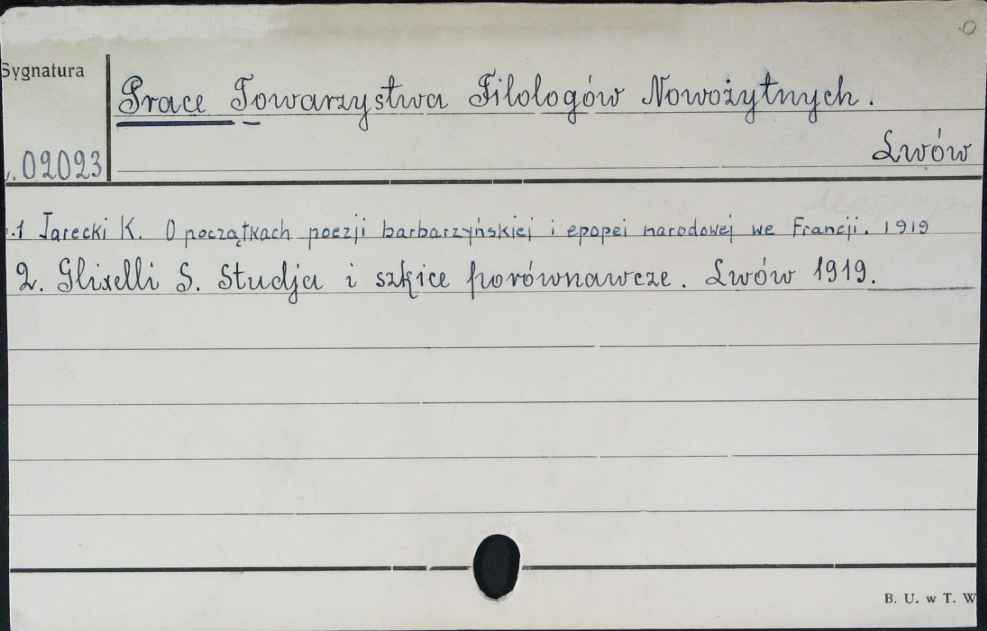 Sygnatura
Prace Towarzystwa Filologów Nowożytnych.
Lwów
02023
1 Jarecki K. O początkach poezji barbarzyńskiej i epopei narodowej we Francji. 1919
2. Glixelli S. Studja i szkice porównawcze. Lwów 1919.
B. U. w T. W